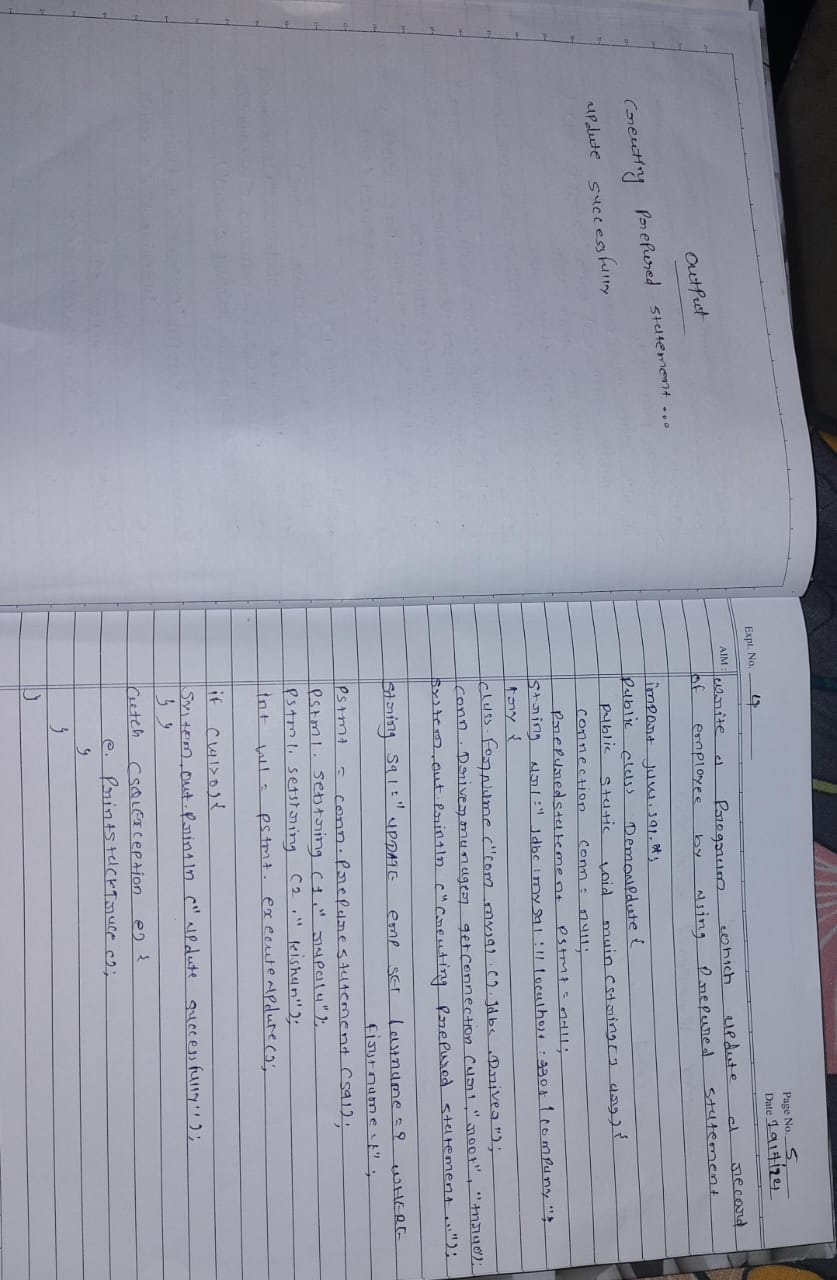 Output
Creating Prepared statement...
update successfully
Expt. No. 4
Page No. 5
AIM: write a program which update a record
of employee by using Prepared statement
import java.sql.*;
Public class Demoupdate {
Public static void main (string[] arg) {
connection conn = null;
Preparedstatement pstmt = null;
string url = "Jdbc:mysql://localhost:3306/company";
try {
class.forname ("com.mysql.cj.Jdbc.Driver");
conn.Drivermanager getconnection (url, "root",
system.out.println ("Creating Prepared statement..");
string sql = "UPDATE emp set lastname = ? WHERE
firstname=?";
Pstmt = conn.Preparestatement (sql);
Pstmt. setstring (1,
Pstmt. setstring (2, "kishan");
int val = pstmt. executeupdate();
if (val>0) {
system.out.println (" update successfully");
} }
catch (SQLException e) {
e. PrintstackTrace ();
}
}
}